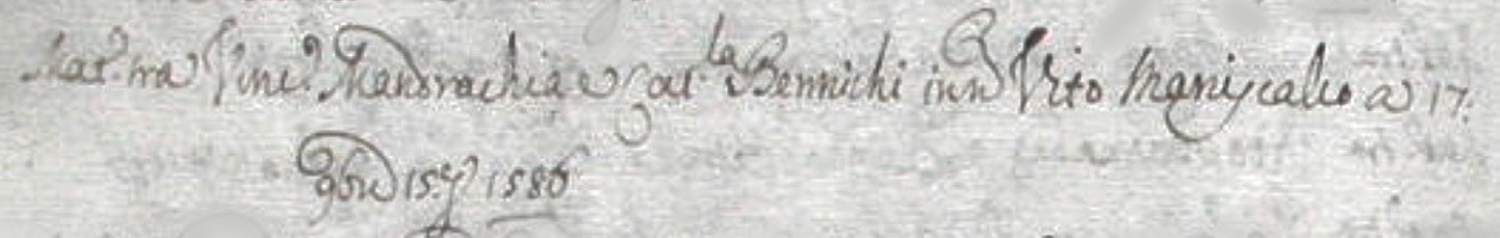 Mat.º tra Vinc.º Mandrachia e Cat.la Bennichi in Nr Vito Maniscalco a 17.
9bre 15 1586